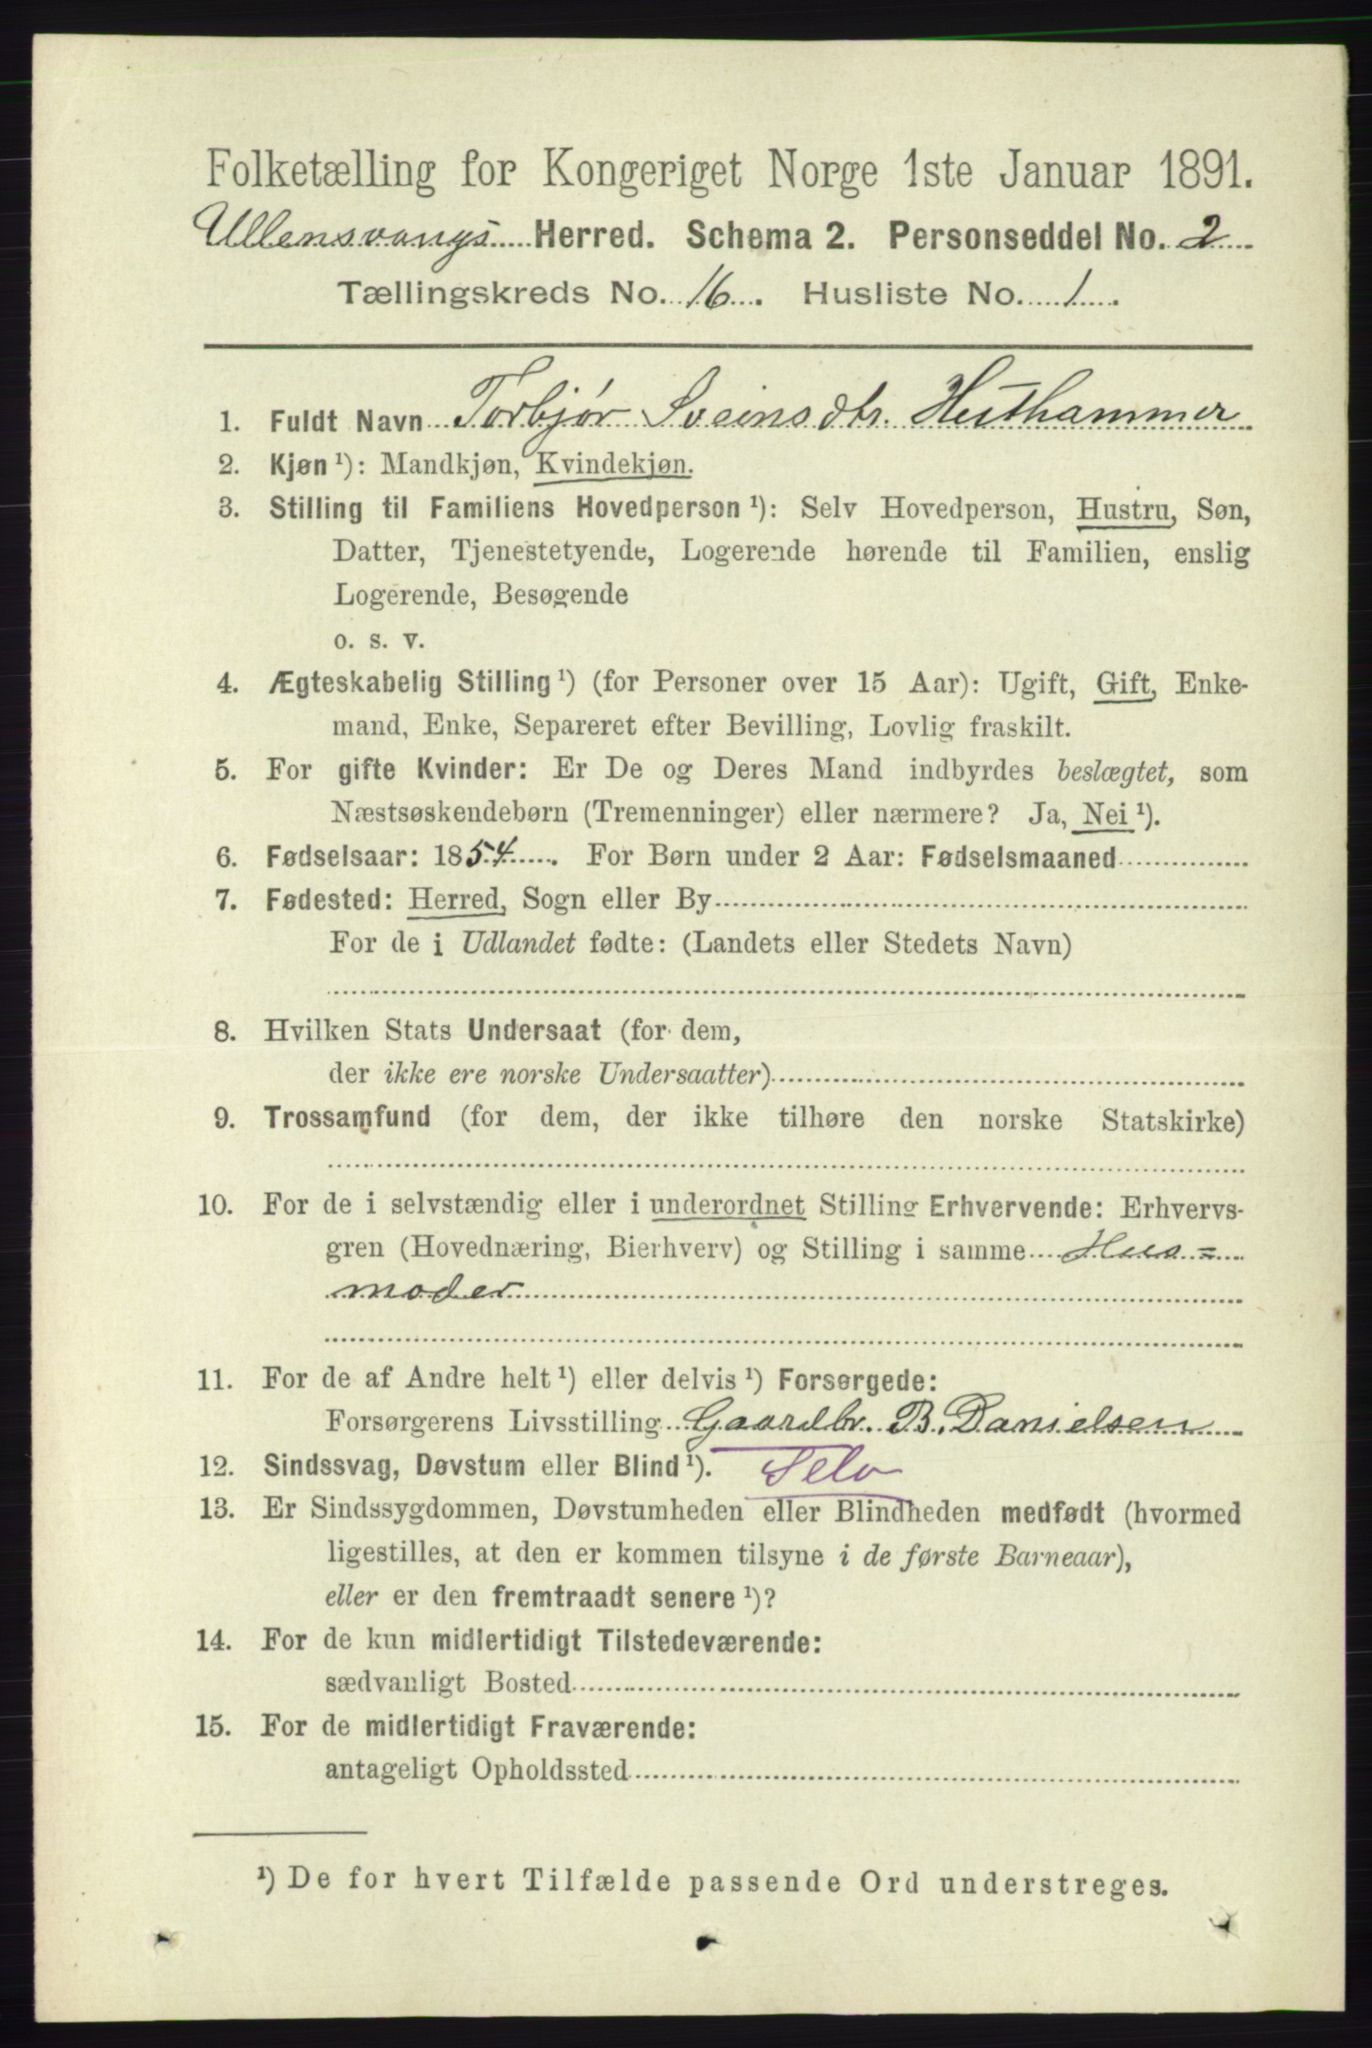 Folketælling for Kongeriget Norge 1ste Januar 1891.
Ullensvangs Herred. Schema 2. Personseddel No. 2
Tællingskreds No. 16. Husliste No. 1.
1. Fuldt Navn Torbjør Sveinsdtr. Husthammer
2. Kjøn ¹): Mandkjøn, Kvindekjøn.
3. Stilling til Familiens Hovedperson ¹): Selv Hovedperson, Hustru, Søn,
Datter, Tjenestetyende, Logerende hørende til Familien, enslig
Logerende, Besøgende
o. s. v.
4. Ægteskabelig Stilling ¹) (for Personer over 15 Aar): Ugift, Gift, Enke-
mand, Enke, Separeret efter Bevilling, Lovlig fraskilt.
5. For gifte Kvinder: Er De og Deres Mand indbyrdes beslægtet, som
Næstsøskendebørn (Tremenninger) eller nærmere? Ja, Nei ¹).
6. Fødselsaar: 1854. For Børn under 2 Aar: Fødselsmaaned
7. Fødested: Herred, Sogn eller By
For de i Udlandet fødte: (Landets eller Stedets Navn)
8. Hvilken Stats Undersaat (for dem,
der ikke ere norske Undersaatter)
9. Trossamfund (for dem, der ikke tilhøre den norske Statskirke)
10. For de i selvstændig eller i underordnet Stilling Erhvervende: Erhvervs-
gren (Hovednæring, Bierhverv) og Stilling i samme Hus=
moder
11. For de af Andre helt ¹) eller delvis ¹) Forsørgede:
Forsørgerens Livsstilling Gaardbr. B. Danielsen
12. Sindssvag, Døvstum eller Blind ¹). Selv
13. Er Sindssygdommen, Døvstumheden eller Blindheden medfødt (hvormed
ligestilles, at den er kommen tilsyne i de første Barneaar),
eller er den fremtraadt senere ¹)?
14. For de kun midlertidigt Tilstedeværende:
sædvanligt Bosted
15. For de midlertidigt Fraværende:
antageligt Opholdssted
¹) De for hvert Tilfælde passende Ord understreges.